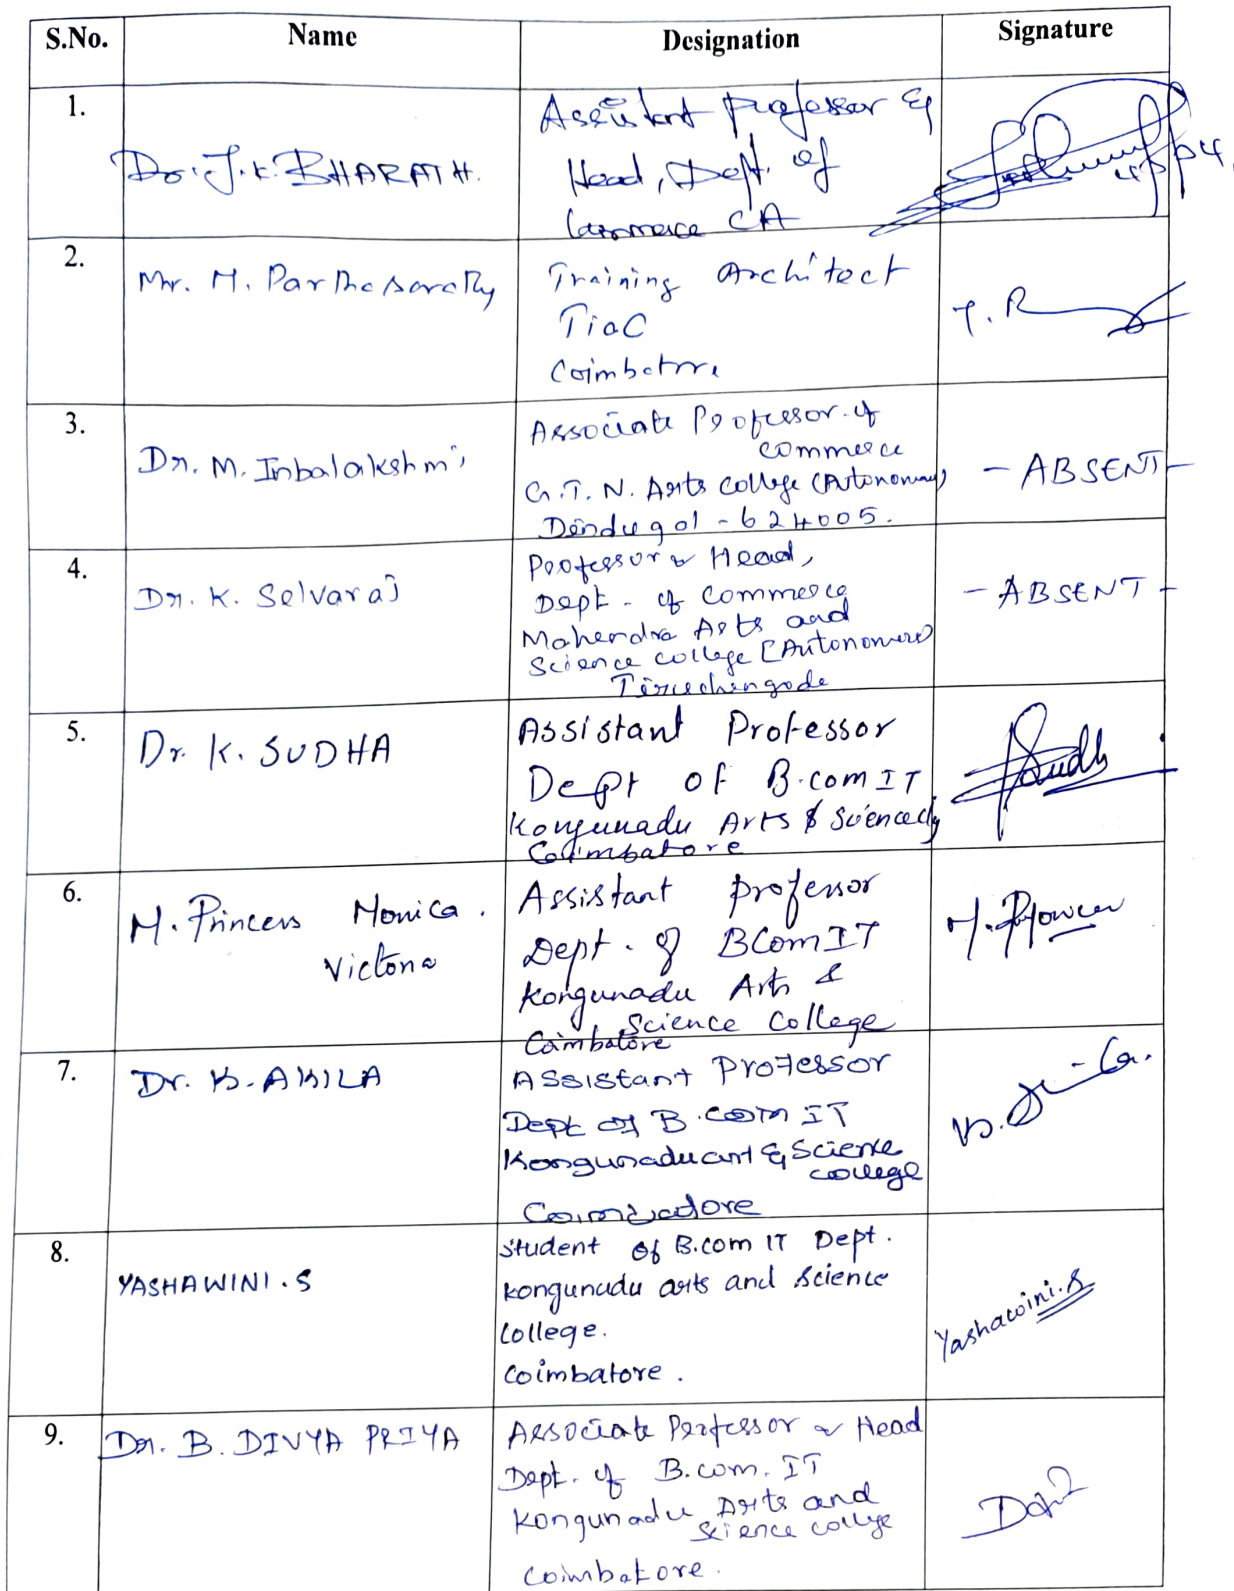 S.No. Name Designation Signature
1. Dr. J.K. BHARATH. Assistant professor &
Head, Dept. of
Commerce CA
2. Mr. M. Parthasarathy Training Architect
TiaC
Coimbatore
3. Dr. M. Inbalakshmi Associate Professor of
commerce
G.T.N. Arts college (Autonomous) - ABSENT -
Dindugal - 624005.
4. Dr. K. Selvaraj Professor & Head,
Dept. of commerce - ABSENT -
Mahendra Arts and
Science college [Autonomous]
Tiruchengode
5. Dr. K. SUDHA Assistant Professor
Dept of B.com IT Sudh
Kongunadu Arts & Science clg
Coimbatore
6. M. Princess Monica. Assistant professor
Victona Dept. of BCom IT
Kongunadu Arts &
Science College
Coimbatore
7. Dr. K. AKILA Assistant Professor
Dept of B.com IT
Kongunadu art & Science
college
Coimbatore
8. YASHAWINI.S Student of B.com IT Dept.
kongunadu arts and science
college. Yashawini.S
Coimbatore.
9. Dr. B. DIVYA PRIYA Associate Professor & Head
Dept. of B.com. IT
Kongunadu Arts and
Science college
Coimbatore.